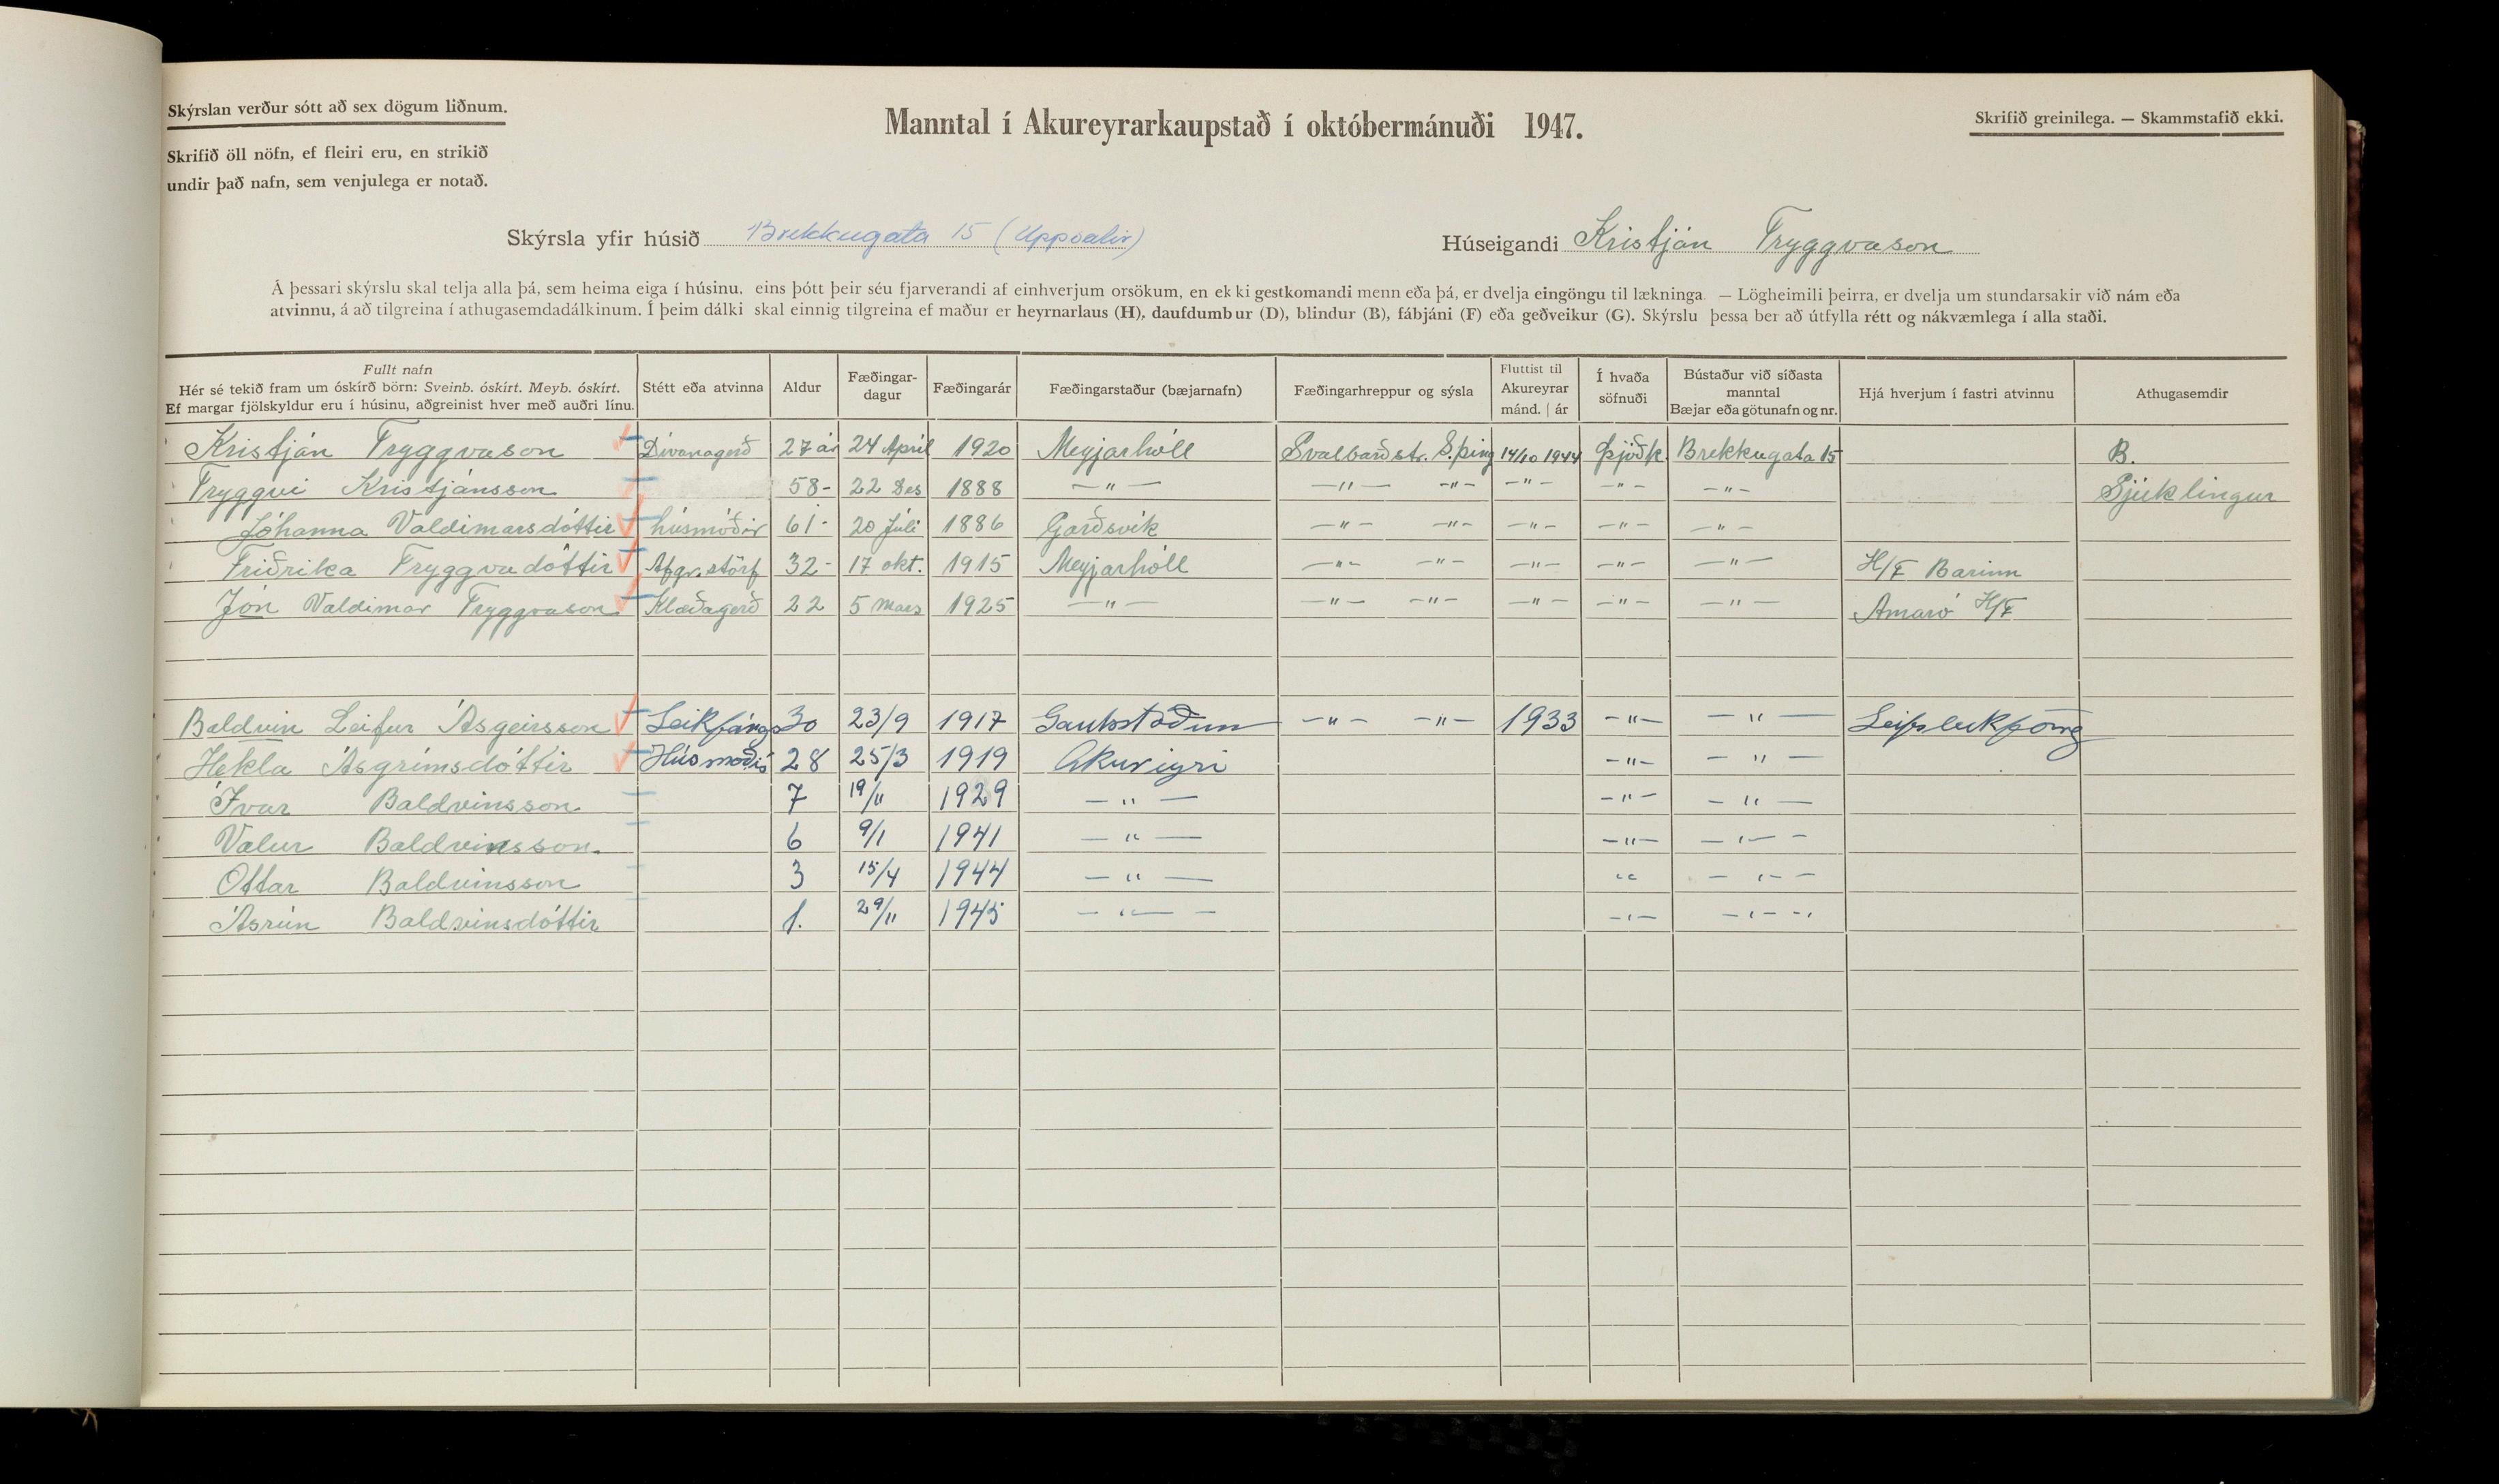 Skýrslan verður sótt að sex dögum liðnum.
Skrifið öll nöfn, ef fleiri eru, en strikið
undir það nafn, sem venjulega er notað.
Manntal í Akureyrarkaupstað í októbermánuði 1947.
Skrifið greinilega. — Skammstafið ekki.
Skýrsla yfir húsið Brekkugata 15 (Uppsalir)
Húseigandi Kristján Tryggvason
Á þessari skýrslu skal telja alla þá, sem heima eiga í húsinu, eins þótt þeir séu fjarverandi af einhverjum orsökum, en ekki gestkomandi menn eða þá, er dvelja eingöngu til lækninga. — Lögheimili þeirra, er dvelja um stundarsakir við nám eða
atvinnu, á að tilgreina í athugasemdadálkinum. Í þeim dálki skal einnig tilgreina ef maður er heyrnarlaus (H), daufdumbur (D), blindur (B), fábjáni (F) eða geðveikur (G). Skýrslu þessa ber að útfylla rétt og nákvæmlega í alla staði.
Fullt nafn
Hér sé tekið fram um óskírð börn: Sveinb. óskírt. Meyb. óskírt.
Ef margar fjölskyldur eru í húsinu, aðgreinist hver með auðri línu.
Stétt eða atvinna
Aldur
Fæðingar-
dagur
Fæðingarár
Fæðingarstaður (bæjarnafn)
Fæðingarhreppur og sýsla
Fluttist til
Akureyrar
mánd. | ár
Í hvaða
söfnuði
Bústaður við síðasta
manntal
Bæjar eða götunafn og nr.
Hjá hverjum í fastri atvinnu
Athugasemdir
Kristján Tryggvason Dívanagerð 27 ár 24 Apríl 1920 Meyjarhóll Svalbarðstr. S.þing 14/10 1944 Þjóðk. Brekkugata 15 B.
Tryggvi Kristjánsson 58- 22 Des 1888 —"— —"— —"— —"— —"— —"— Sjúklingur
Jóhanna Valdimarsdóttir húsmóðir 61- 20 Júlí 1886 Garðsvík —"— —"— —"— —"— —"—
Friðrika Tryggvadóttir Afgr.störf 32- 17 okt. 1915 Meyjarhóll —"— —"— —"— —"— —"— H/F Barinn
Jón Valdimar Tryggvason Klæðagerð 22 5 Mars 1925 —"— —"— —"— —"— —"— —"— Amaró H/F
Baldvin Leifur Ásgeirsson Leikfanga 30 23/9 1917 Gautstöðum —"— —"— 1933 —"— —"—
Hekla Ásgrímsdóttir Húsmóðir 28 25/3 1919 Akureyri —"— —"—
Ívar Baldvinsson 7 19/11 1929 —"— —"— —"—
Valur Baldvinsson. 6 9/1 1941 —"— —"— —"—
Óttar Baldvinsson 3 15/4 1944 —"— " —"—
Ásrún Baldvinsdóttir 1. 29/11 1945 —"— —"— —"—